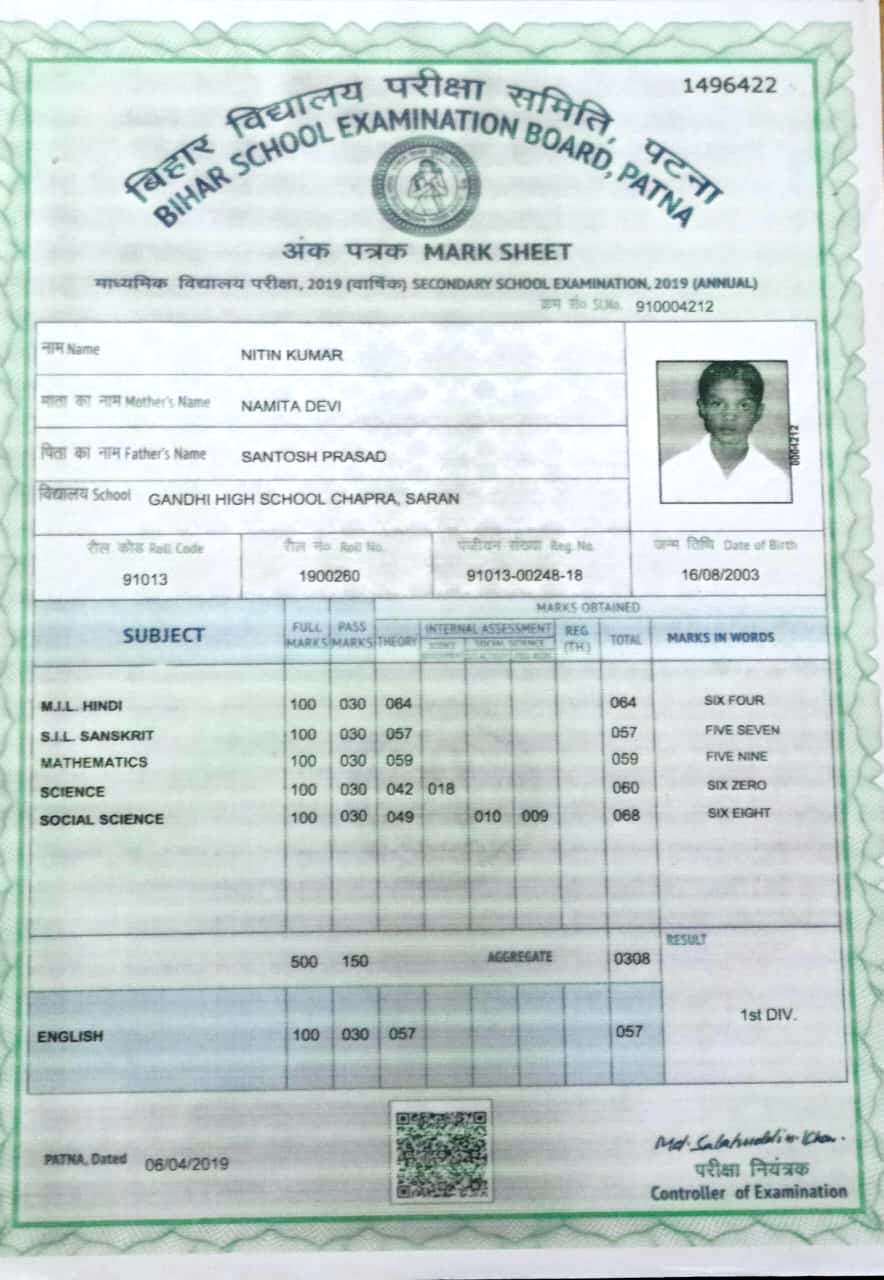 1496422
बिहार विद्यालय परीक्षा समिति, पटना
BIHAR SCHOOL EXAMINATION BOARD, PATNA
अंक पत्रक MARK SHEET
माध्यमिक विद्यालय परीक्षा, 2019 (वार्षिक) SECONDARY SCHOOL EXAMINATION, 2019 (ANNUAL)
क्रम सं० Sl.No. 910004212
नाम Name NITIN KUMAR
माता का नाम Mother's Name NAMITA DEVI
0004212
पिता का नाम Father's Name SANTOSH PRASAD
विद्यालय School GANDHI HIGH SCHOOL CHAPRA, SARAN
रौल कोड Roll Code रौल नं० Roll No. पंजीयन संख्या Reg. No. जन्म तिथि Date of Birth
91013 1900260 91013-00248-18 16/08/2003
MARKS OBTAINED
SUBJECT FULL MARKS PASS MARKS THEORY INTERNAL ASSESSMENT SOCIAL SCIENCE REG (TH.) TOTAL MARKS IN WORDS
M.I.L. HINDI 100 030 064 064 SIX FOUR
S.I.L. SANSKRIT 100 030 057 057 FIVE SEVEN
MATHEMATICS 100 030 059 059 FIVE NINE
SCIENCE 100 030 042 018 060 SIX ZERO
SOCIAL SCIENCE 100 030 049 010 009 068 SIX EIGHT
500 150 AGGREGATE 0308
RESULT
1st DIV.
ENGLISH 100 030 057 057
PATNA, Dated 06/04/2019
Md. Salahuddin Khan.
परीक्षा नियंत्रक
Controller of Examination